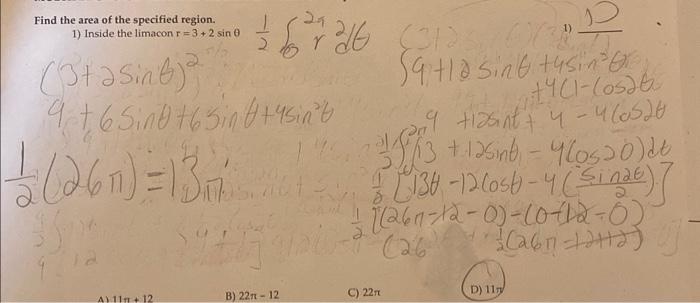 Find the area of the specified region.
1) Inside the limacon r = 3 + 2 sin θ
1/2 ∫ 0 2π r² dθ
1) D
(3+2 sinθ)²
∫9+12 sinθ+4sin²θ
+4(1-cos2θ
9+6 sinθ+6 sinθ+4sin²θ
9 +12sinθ + 4 - 4cos2θ
1/2 ∫ (13 +12sinθ - 4cos2θ)dθ
1/2(26π)=13π
[13θ -12cosθ -4(sin2θ/2)]
1/2 [(26π-12-0)-(0-12-0)
(26
1/2(26π-12+12)
A) 11π + 12
B) 22π - 12
C) 22π
D) 11π